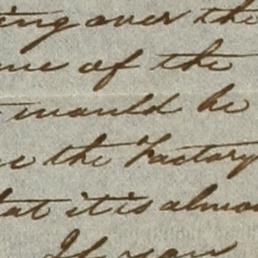 ing over the
me of the
would be
the Factory
at it is almo
If you